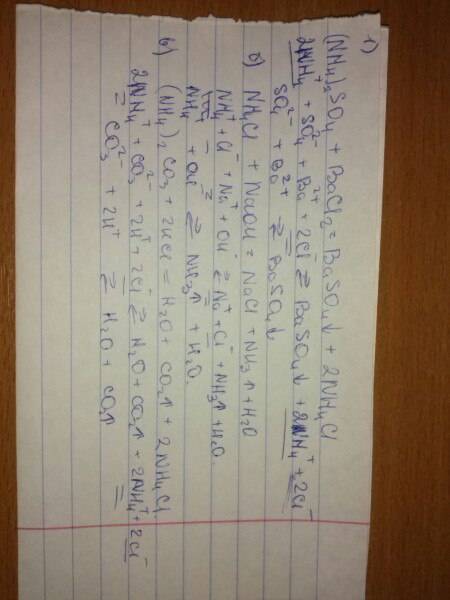 1) (NH₄)₂SO₄ + BaCl₂ = BaSO₄↓ + 2NH₄Cl
2NH₄⁺ + SO₄²⁻ + Ba²⁺ + 2Cl⁻ ⇄ BaSO₄↓ + 2NH₄⁺ + 2Cl⁻
SO₄²⁻ + Ba²⁺ ⇄ BaSO₄↓
б) NH₄Cl + NaOH = NaCl + NH₃↑ + H₂O
NH₄⁺ + Cl⁻ + Na⁺ + OH⁻ ⇄ Na⁺ + Cl⁻ + NH₃↑ + H₂O
NH₄⁺ + OH⁻ ⇄ NH₃↑ + H₂O
в) (NH₄)₂CO₃ + 2HCl = H₂O + CO₂↑ + 2NH₄Cl
2NH₄⁺ + CO₃²⁻ + 2H⁺ + 2Cl⁻ ⇄ H₂O + CO₂↑ + 2NH₄⁺ + 2Cl⁻
⇄ CO₃²⁻ + 2H⁺ ⇄ H₂O + CO₂↑